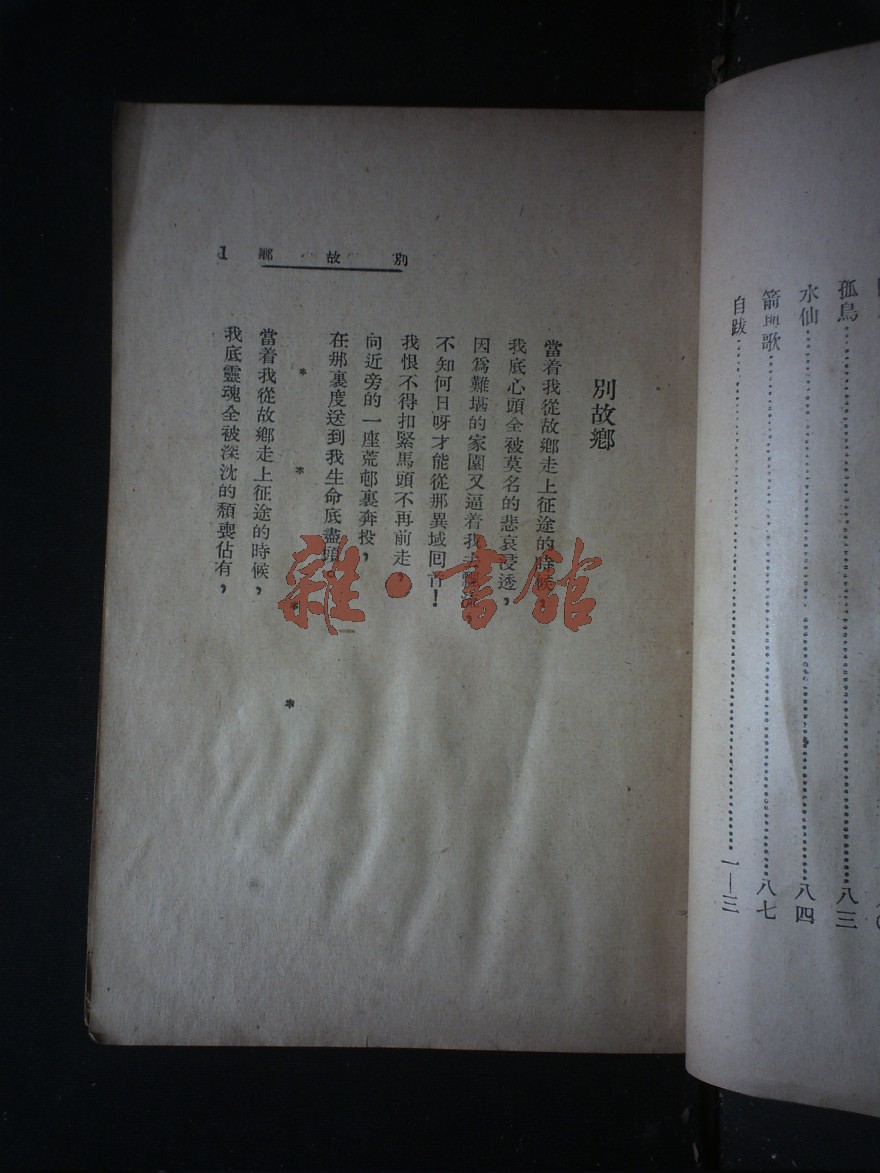 孤鳥……八三
水仙……八四
箭與歌……八七
自跋……一—三
別故鄉
1
別故鄉
當着我從故鄉走上征途的時候,
我底心頭全被莫名的悲哀浸透,
因爲難堪的家園又逼着我去飄流,
不知何日呀才能從那異域回首!
我恨不得扣緊馬頭不再前走,
向近旁的一座荒邨裏奔投,
在那裏度送到我生命底盡頭。
* * * *
當着我從故鄉走上征途的時候,
我底靈魂全被深沈的頹喪佔有,
雜·書館